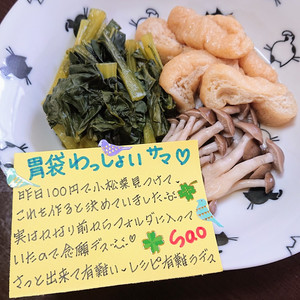 胃袋わっしょいサマ♡
昨日100円で小松菜見つけて、
これを作ると決めていました
実はかなり前からフォルダに入って
いたので念願デス
sao
さっと出来て有難い〜レシピ有難うデス